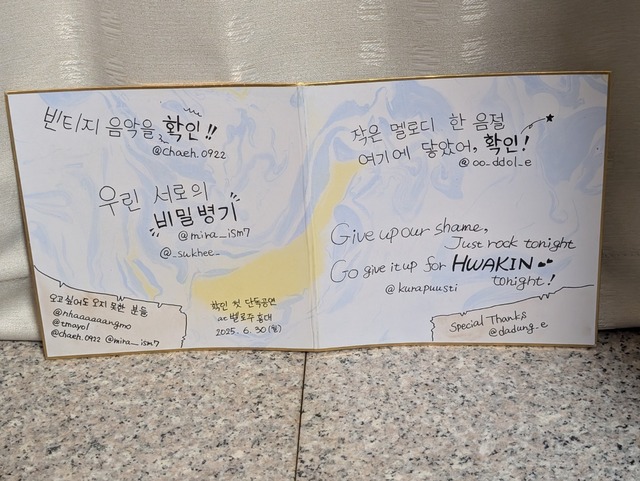 빈티지 음악을, 확인!!
@chaeh.0922
우린 서로의
비밀병기
@mira_ism7
@_sukhee_
오고싶어도 오지 못한 분들
@nhaaaaaangmo
@tmayol
@chaeh.0922 @mira_ism7
확인 첫 단독공연
at 벨로주 홍대
2025.6.30(월)
작은 멜로디 한 음절
여기에 닿았어, 확인!
@oo_ddol_e
Give up our shame,
Just rock tonight
Go give it up for HWAKIN
tonight!
@kurapuusti
Special Thanks
@dadung_e